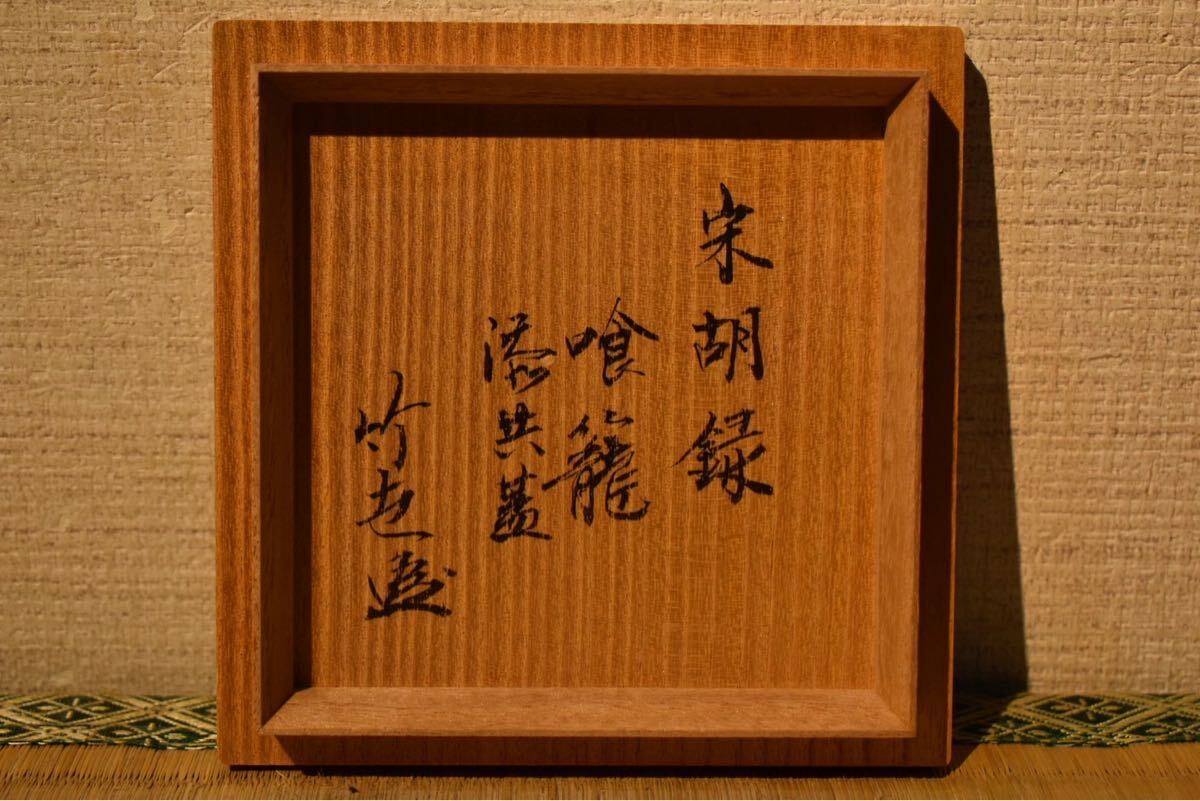 宋胡録
喰籠
添共蓋
竹世堂